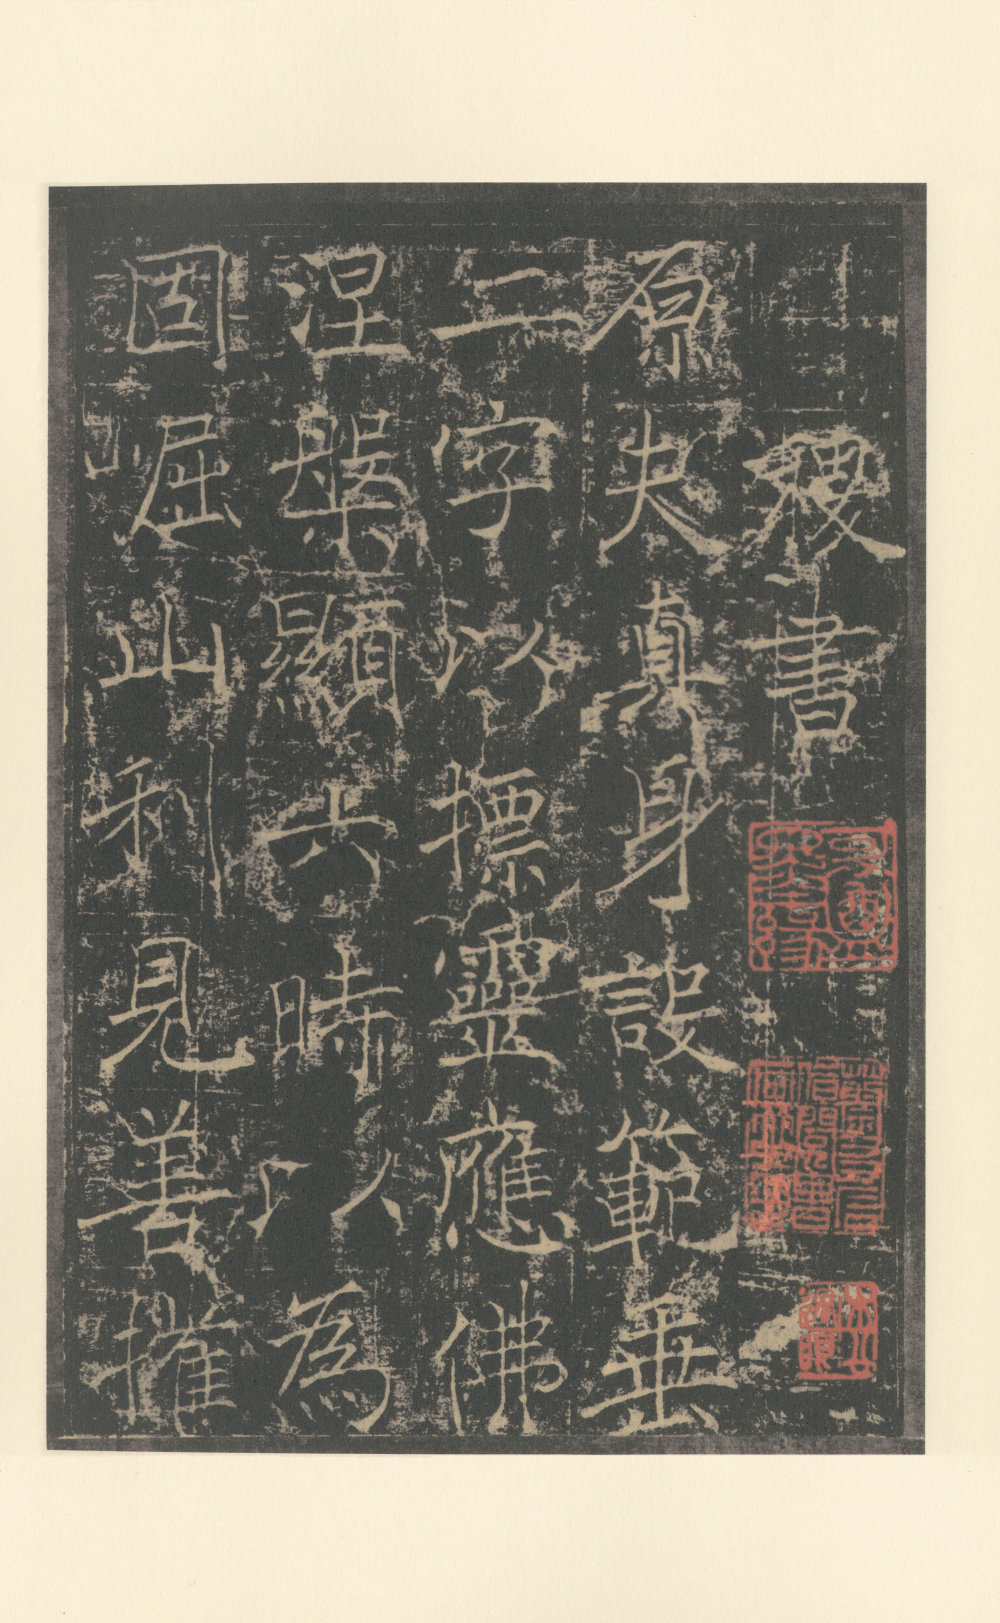 稷書
原夫真身設範垂
二字以摽靈應佛
涅槃顯六時以為
固崛山利見善權